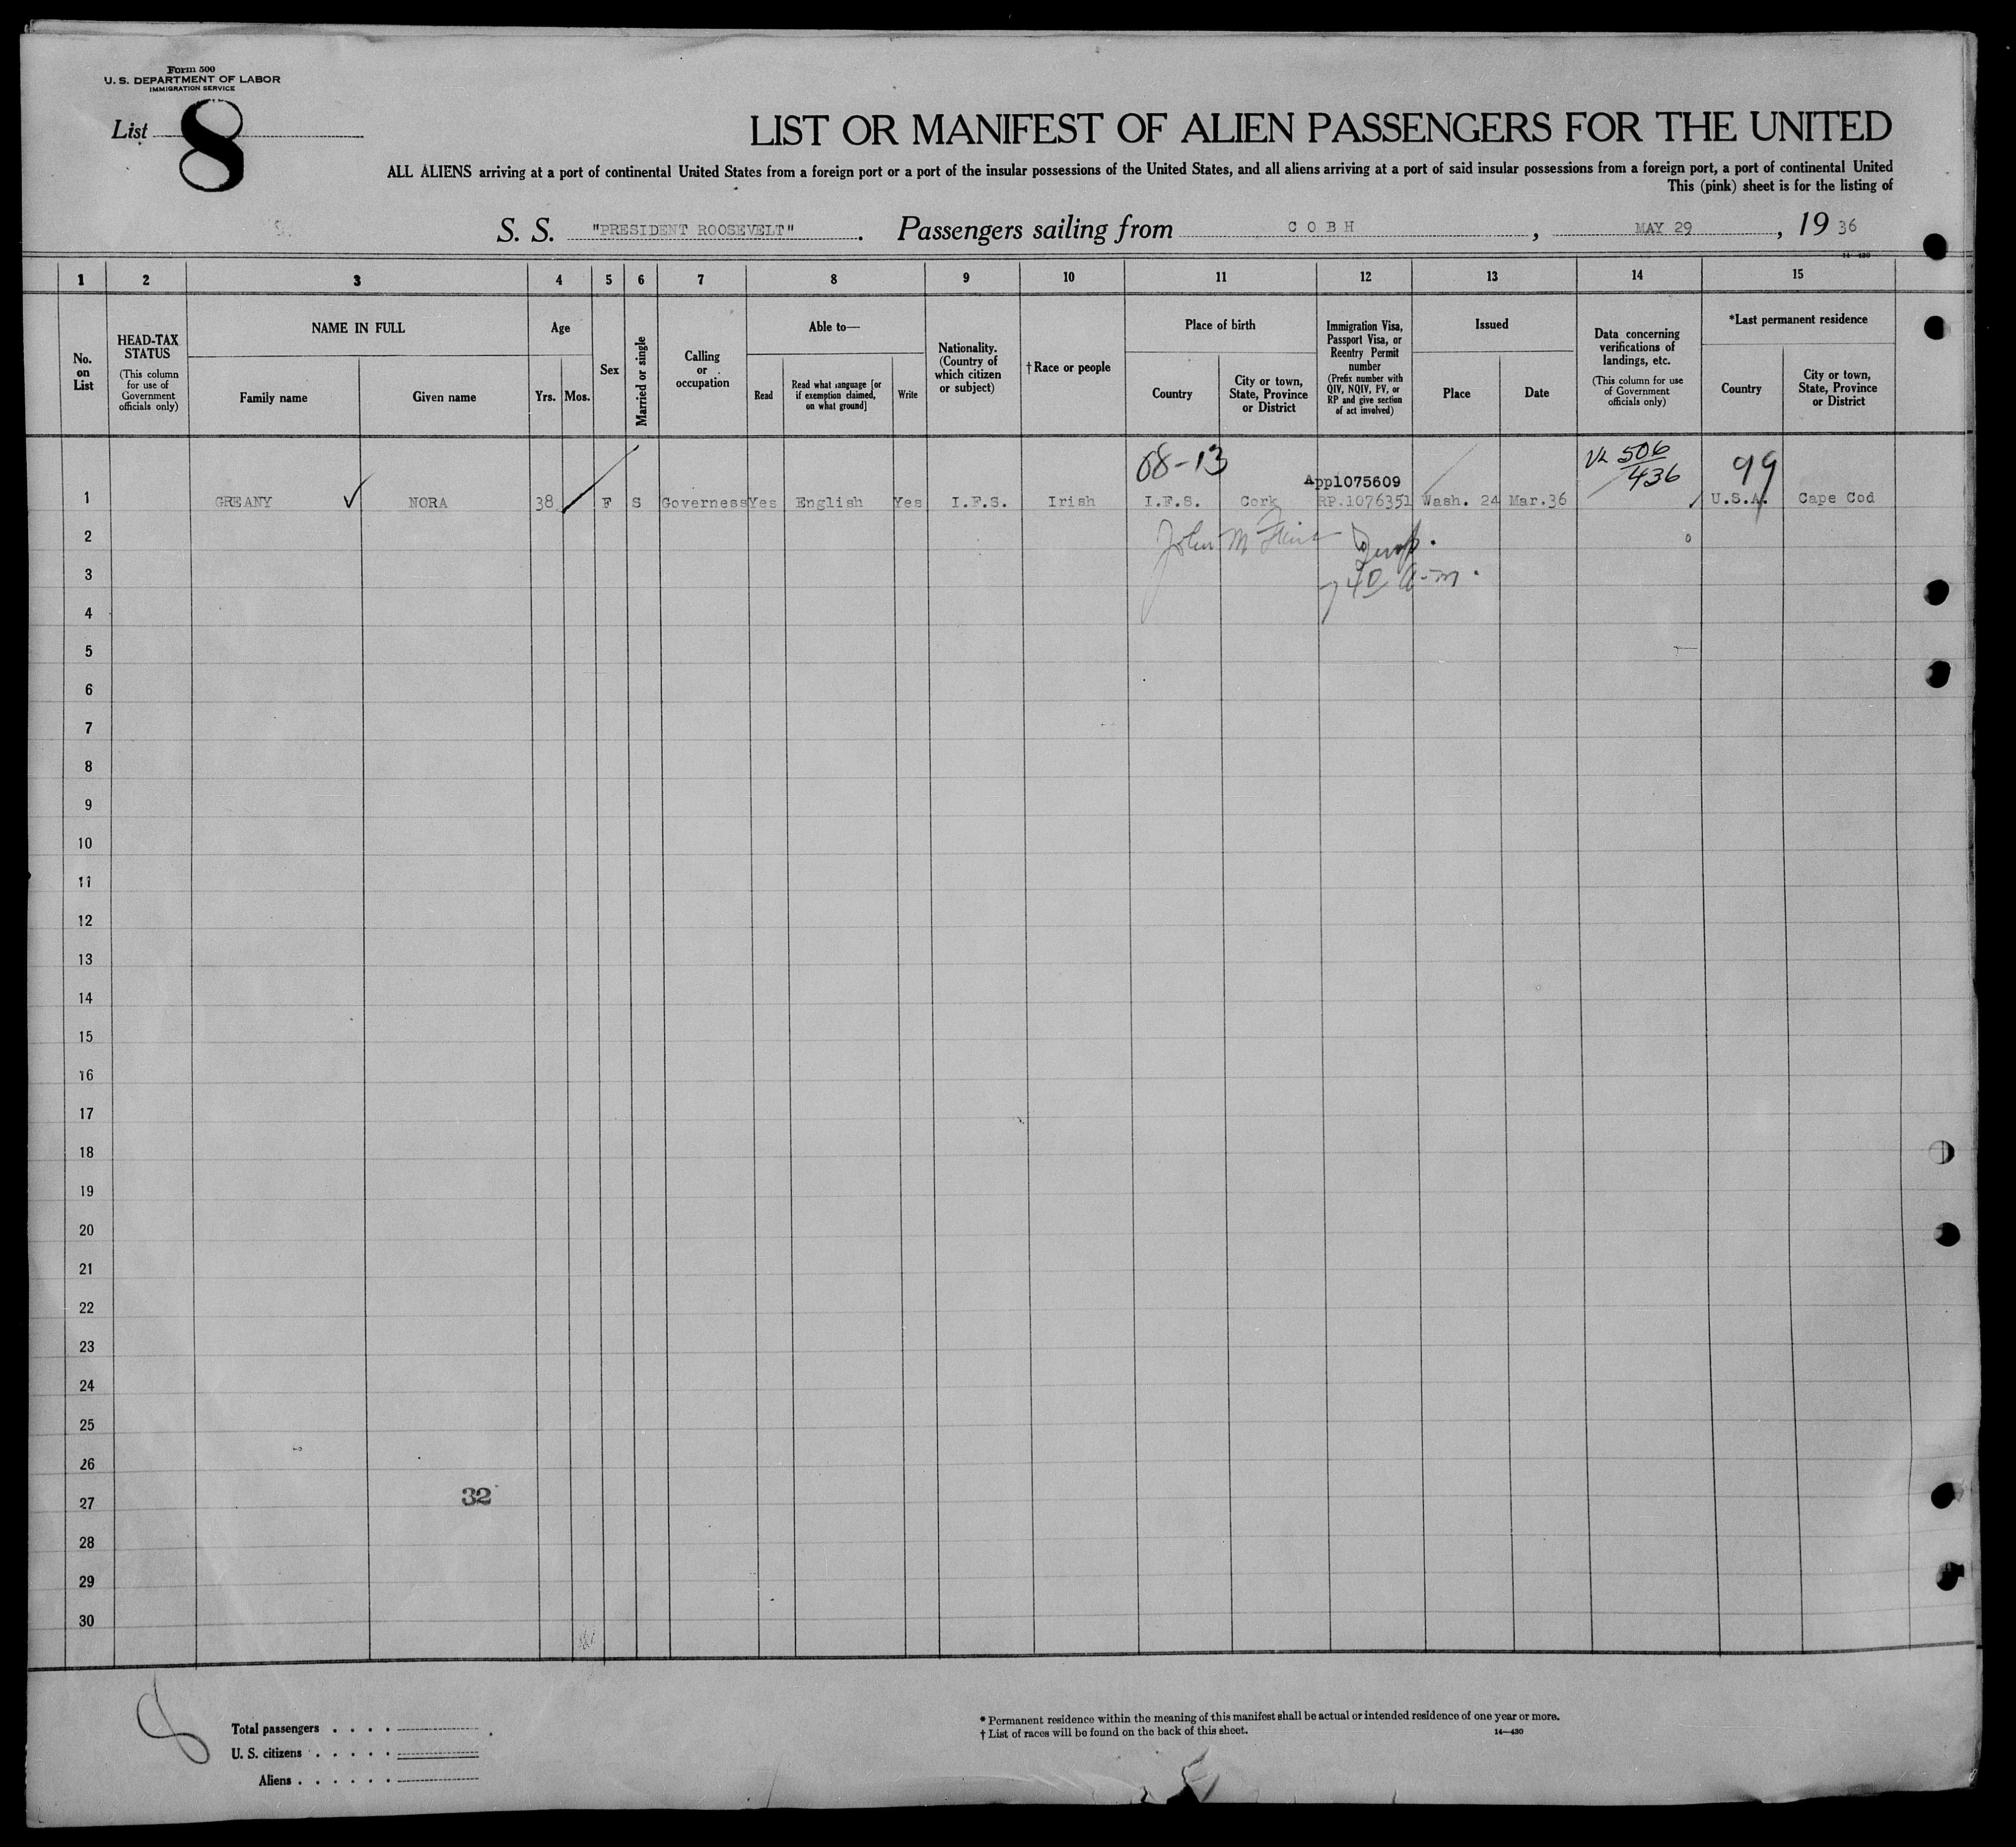 Form 500
U. S. DEPARTMENT OF LABOR
IMMIGRATION SERVICE
List 8
LIST OR MANIFEST OF ALIEN PASSENGERS FOR THE UNITED
ALL ALIENS arriving at a port of continental United States from a foreign port or a port of the insular possessions of the United States, and all aliens arriving at a port of said insular possessions from a foreign port, a port of continental United
This (pink) sheet is for the listing of
S. S. "PRESIDENT ROOSEVELT". Passengers sailing from COBH, MAY 29, 19 36
14—430
1 2 3 4 5 6 7 8 9 10 11 12 13 14 15
No. on List
HEAD-TAX STATUS
(This column for use of Government officials only)
NAME IN FULL
Family name
Given name
Age
Yrs.
Mos.
Sex
Married or single
Calling or occupation
Able to—
Read
Read what language [or if exemption claimed, on what ground]
Write
Nationality. (Country of which citizen or subject)
† Race or people
Place of birth
Country
City or town, State, Province or District
Immigration Visa, Passport Visa, or Reentry Permit number
(Prefix number with QIV, NQIV, PV, or RP and give section of act involved)
Issued
Place
Date
Data concerning verifications of landings, etc.
(This column for use of Government officials only)
*Last permanent residence
Country
City or town, State, Province or District
08-13 506 99
App1075609 436
1 GREANY NORA 38 F S Governess Yes English Yes I.F.S. Irish I.F.S. Cork RP.1076351 Wash. 24 Mar.36 U.S.A. Cape Cod
2 John M
3
4
5
6
7
8
9
10
11
12
13
14
15
16
17
18
19
20
21
22
23
24
25
26
27 32
28
29
30
8
Total passengers
U. S. citizens
Aliens
* Permanent residence within the meaning of this manifest shall be actual or intended residence of one year or more.
† List of races will be found on the back of this sheet.
14—430